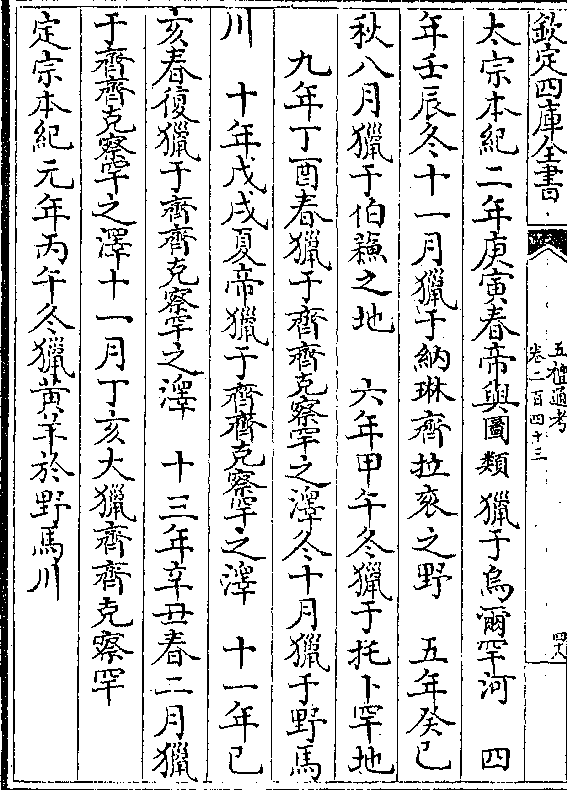 欽定四庫全書
五禮通考
卷二百四十三
四八
太宗本紀二年庚寅春帝與圖類獵于烏爾罕河 四
年壬辰冬十一月獵于納琳齊拉衮之野 五年癸巳
秋八月獵于伯蘓之地 六年甲午冬獵于托卜罕地
九年丁酉春獵于齊齊克察罕之澤冬十月獵于野馬
川 十年戊戌夏帝獵于齊齊克察罕之澤 十一年已
亥春復獵于齊齊克察罕之澤 十三年辛丑春二月獵
于齊齊克察罕之澤十一月丁亥大獵齊齊克察罕
定宗本紀元年丙午冬獵黄羊於野馬川